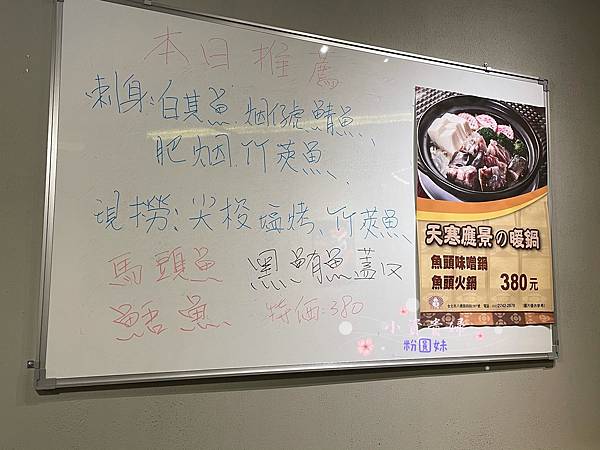 本日推薦
刺身:白其魚、烟仔虎、鯖魚、
肥烟、竹莢魚、
現撈:尖梭、塩烤、竹莢魚、
馬頭魚 黑鮪魚蓋又
魚 特価:380
天寒應景の暖鍋
魚頭味噌鍋
魚頭火鍋 380元
粉圓妹